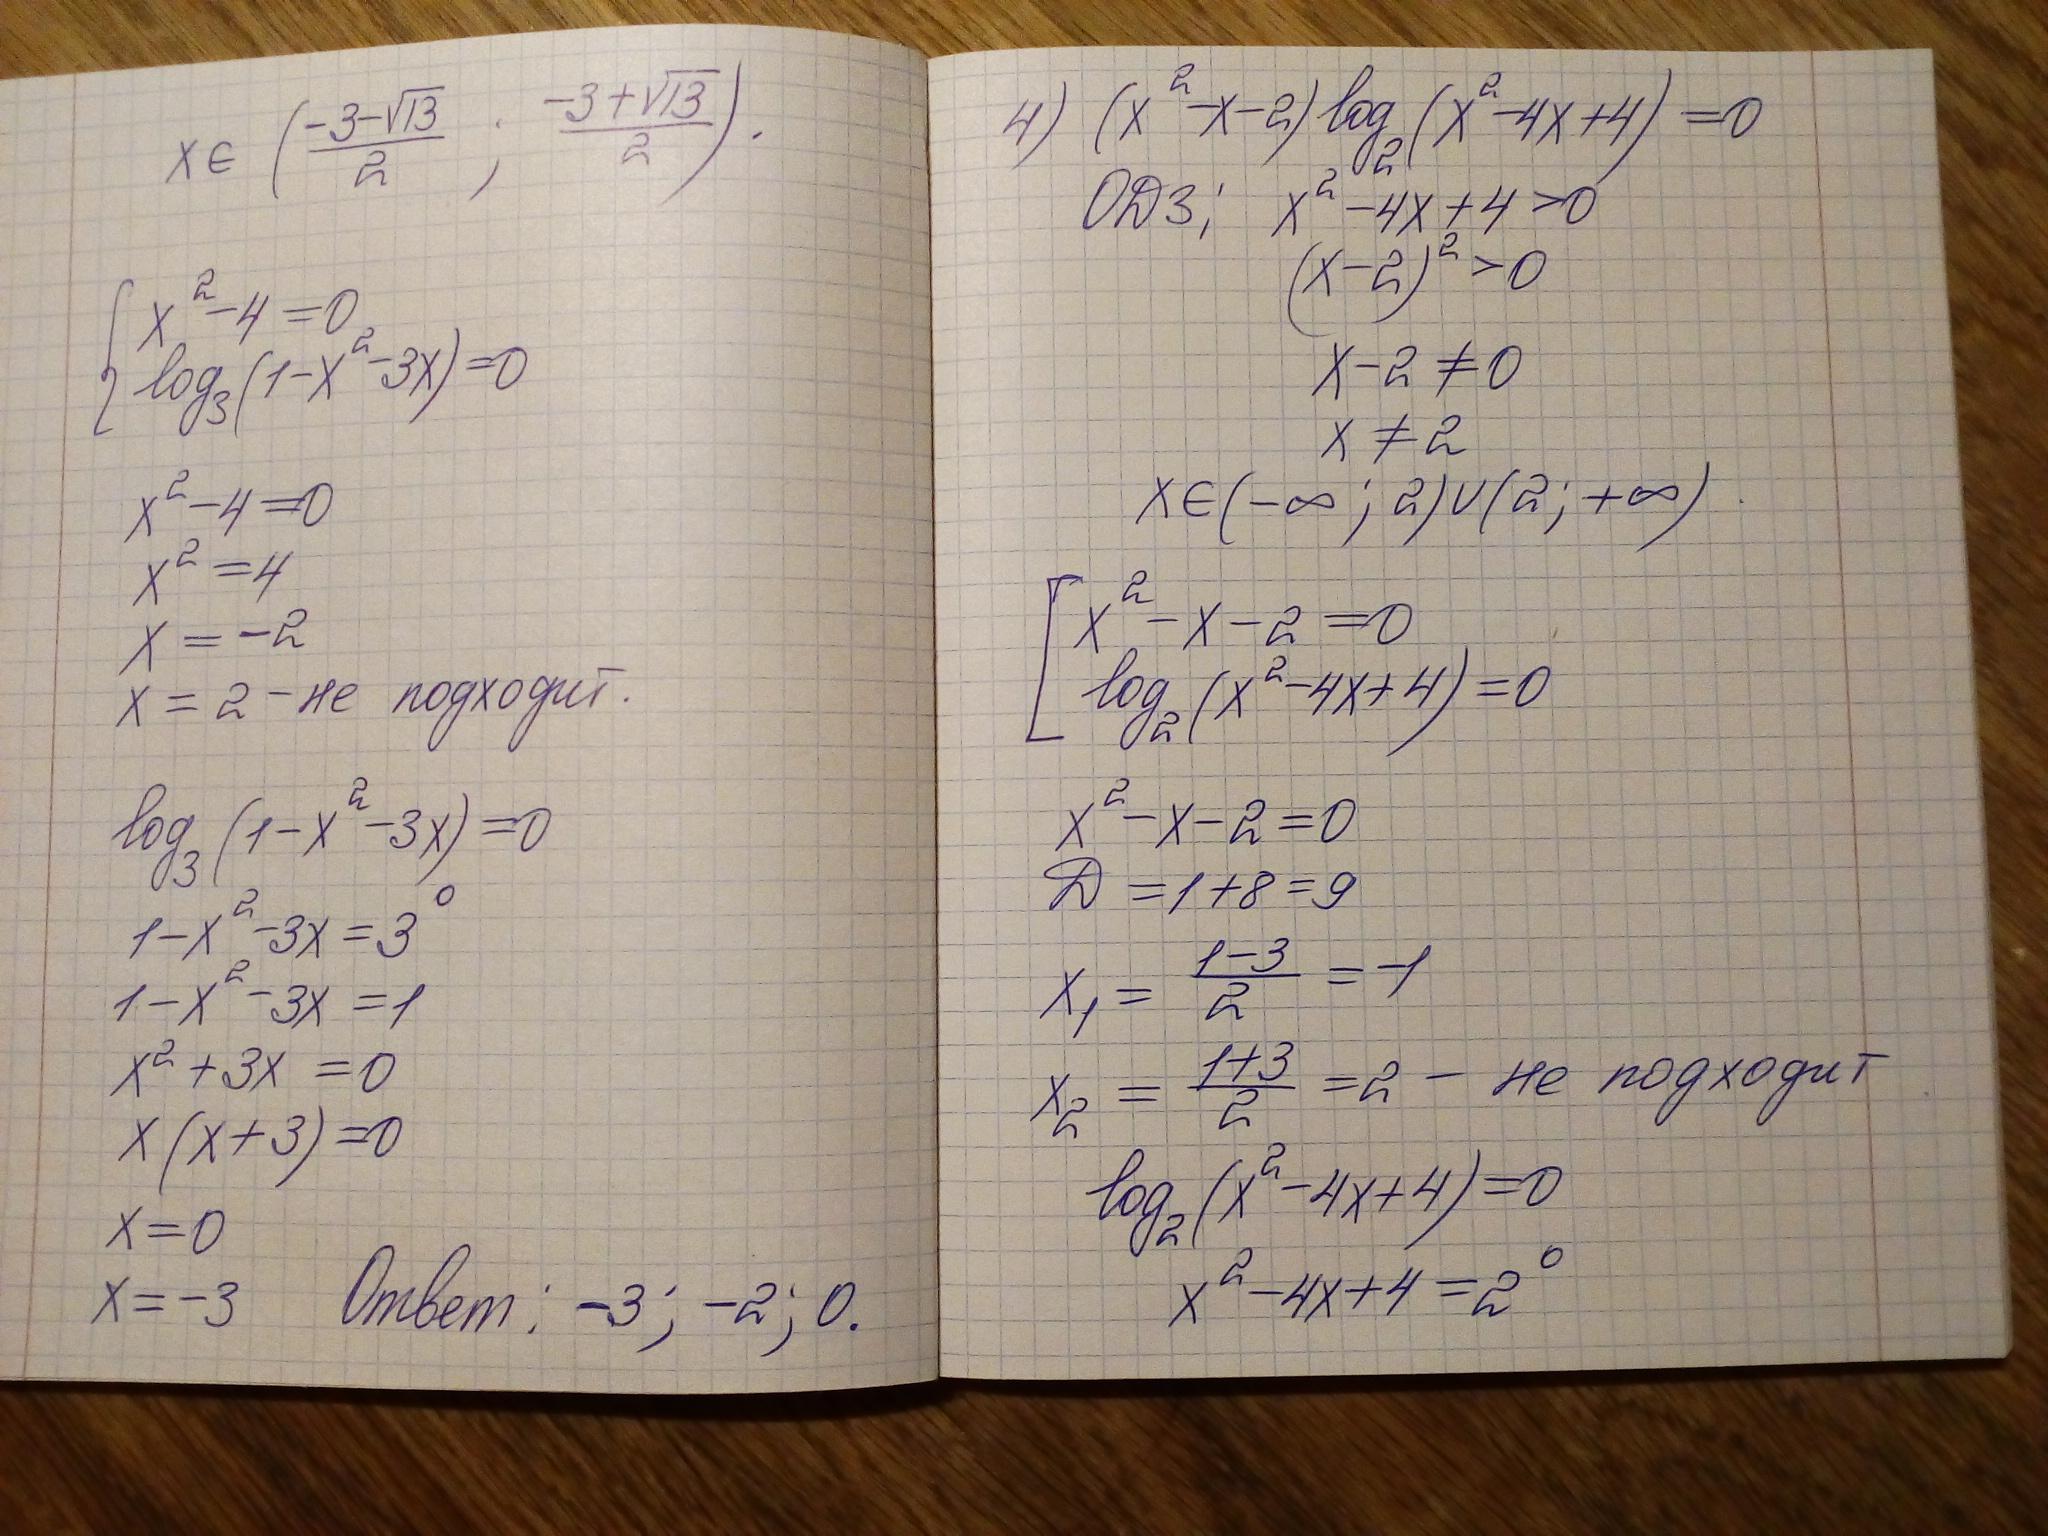 x∈ (\frac{-3-√13}{2} ; \frac{-3+√13}{2}).
{ x²-4=0
log₃(1-x²-3x)=0
x²-4=0
x²=4
x=-2
x=2 - не подходит.
log₃(1-x²-3x)=0
1-x²-3x=3⁰
1-x²-3x=1
x²+3x=0
x(x+3)=0
x=0
x=-3 Ответ: -3; -2; 0.
4) (x²-x-2)log₂(x²-4x+4)=0
ОДЗ: x²-4x+4>0
(x-2)²>0
x-2≠0
x≠2
x∈(-∞; 2)∪(2; +∞).
[ x²-x-2=0
log₂(x²-4x+4)=0
x²-x-2=0
D=1+8=9
x₁=\frac{1-3}{2}=-1
x₂=\frac{1+3}{2}=2 - не подходит
log₂(x²-4x+4)=0
x²-4x+4=2⁰